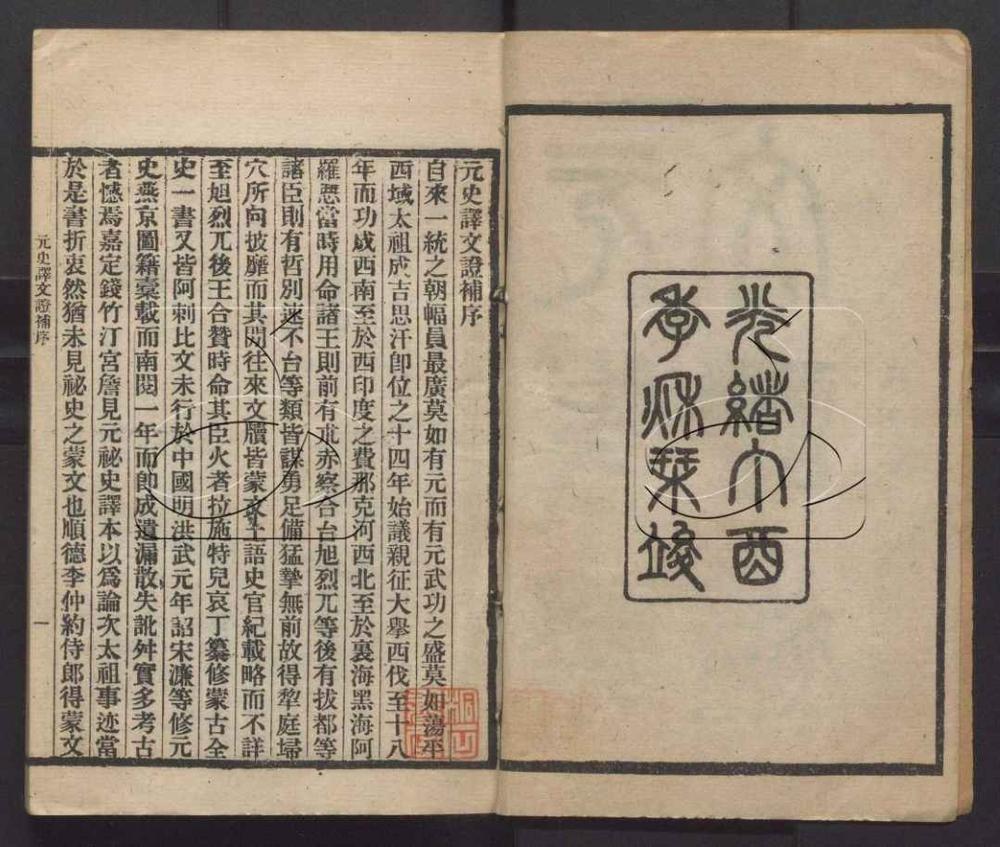 光緒丁酉
孝秌栞竣
元史譯文證補序
自來一統之朝幅員最廣莫如有元而有元武功之盛莫如蕩平
西域太祖成吉思汗卽位之十四年始議親征大舉西伐至十八
年而功成西南至於西印度之費那克河西北至於裏海黑海阿
羅思當時用命諸王則前有朮赤察合台旭烈兀等後有拔都等
諸臣則有哲別速不台等類皆謀勇足備猛摯無前故得犂庭埽
穴所向披靡而其閒往來文牘皆蒙文土語史官紀載略而不詳
至旭烈兀後王合贊時命其臣火者拉施特兒哀丁纂修蒙古全
史一書又皆阿剌比文未行於中國明洪武元年詔宋濂等修元
史燕京圖籍橐載而南閱一年而卽成遺漏散失訛舛實多考古
者憾焉嘉定錢竹汀宮詹見元祕史譯本以爲論次太祖事迹當
於是書折衷然猶未見祕史之蒙文也順德李仲約侍郎得蒙文
元史譯文證補序
一